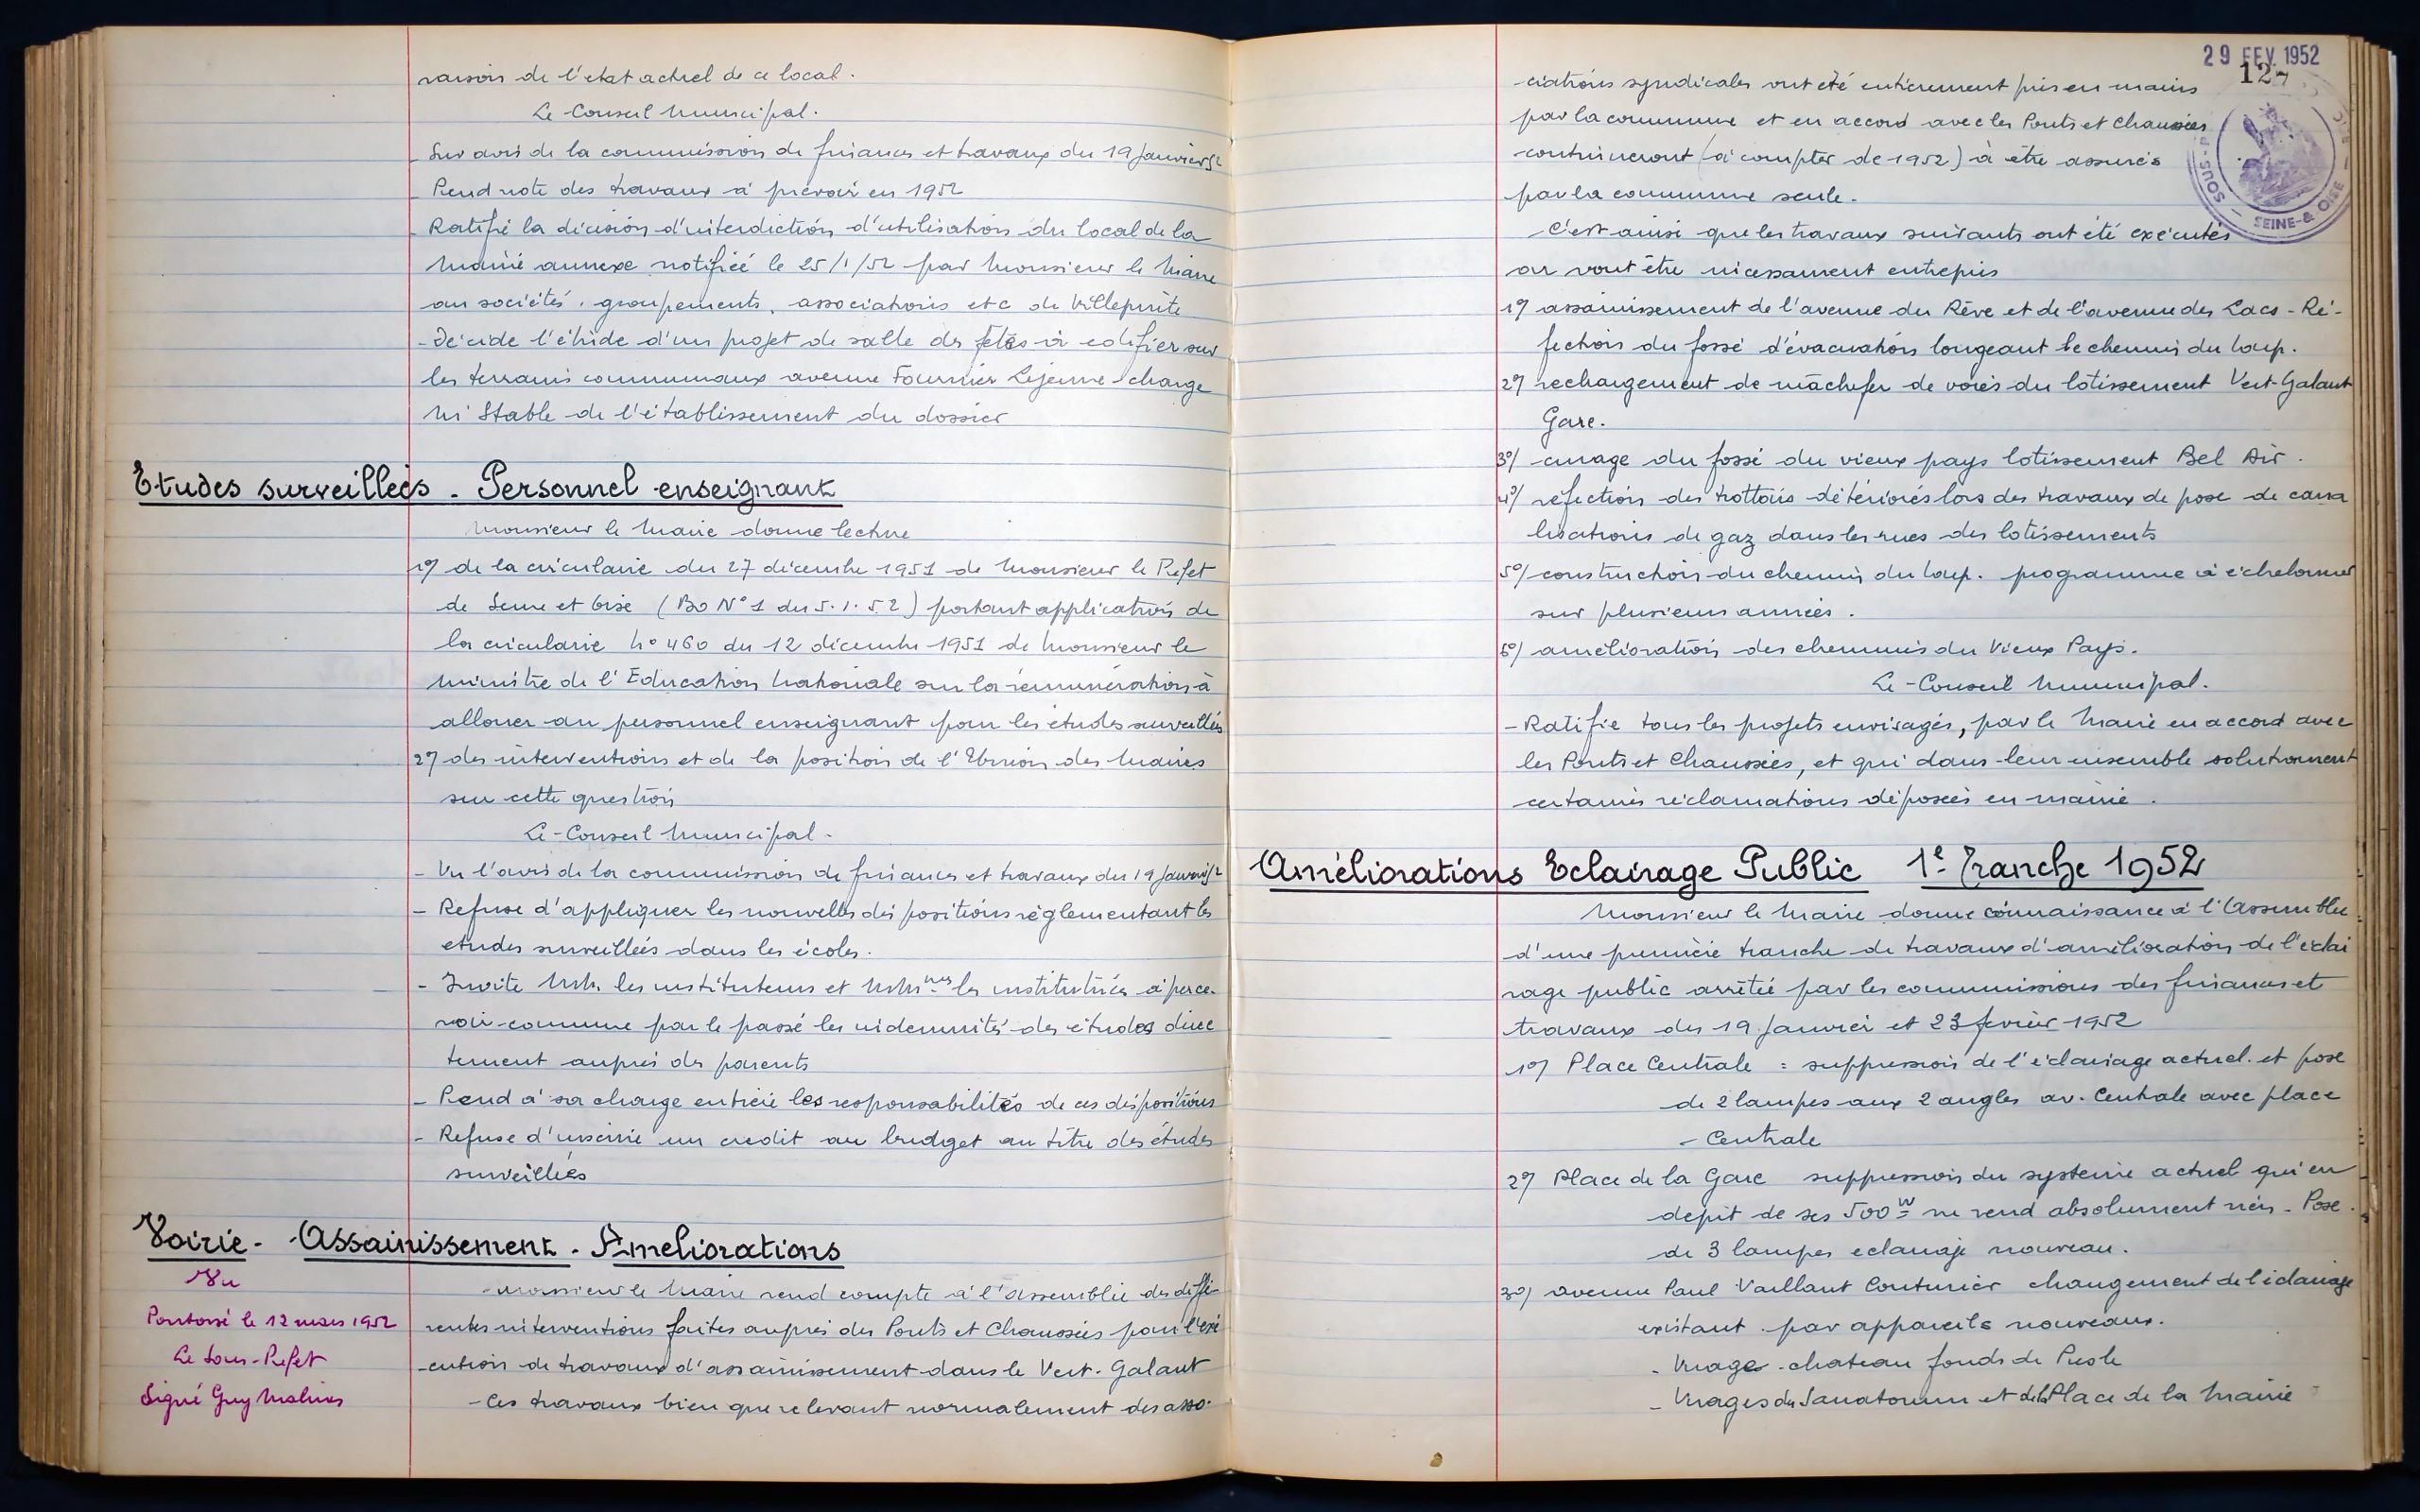 raison de l'etat actuel de ce local.
Le Conseil Municipal.
- Sur avis de la commission de finances et travaux du 19 Janvier 52
- Prend note des travaux à prévoir en 1952
- Ratifie la décision d'interdiction d'utilisation du local de la
Mairie annexe notifiée le 25/1/52 par Monsieur le Maire
au sociétés, groupements, associations etc de Villepinte
- Décide l'étude d'un projet de salle des fêtes à edifier sur
les terrains communaux avenue Fournier Lejeune charge
Mr Stable de l'établissement du dossier
Etudes surveillées - Personnel enseignant
Monsieur le Maire donne lecture
1°/ de la circulaire du 27 décembre 1951 de Monsieur le Prefet
de Seine et Oise (BO N° 1 du 5.1.52) portant application de
la circulaire N° 460 du 12 décembre 1951 de Monsieur le
Ministre de l'Education Nationale sur la rémunération à
allouer au personnel enseignant pour les études surveillées
2°/ des interventions et de la position de l'Union des Maires
sur cette question
Le Conseil Municipal.
- Vu l'avis de la commission de finances et travaux du 19 Janvier 52
- Refuse d'appliquer les nouvelles dispositions réglementant les
etudes surveillées dans les écoles.
- Invite MM. les instituteurs et MMmes les institutrices à perce-
voir comme par le passé les indemnités des études direc
tement auprès des parents
- Prend à sa charge entière les responsabilités de ces dispositions
- Refuse d'inscrire un credit au budget au titre des études
surveillées
Voirie - Assainissement - Ameliorations
Vu
Pontoise le 12 mars 1952
Le Sous-Prefet
Signé Guy Malines
Monsieur le Maire rend compte à l'Assemblée des diffé-
rentes interventions faites auprès des Ponts et Chaussées pour l'exé
-cution de travaux d'assainissement dans le Vert-Galant
- Ces travaux bien que relevant normalement des asso-
29 FEV. 1952
127
SOUS-P
SEINE-&-OISE
-ciations syndicales ont été entièrement pris en mains
par la commune et en accord avec les Ponts et Chaussées
continueront (à compter de 1952) à être assurés
par la commune seule.
C'est ainsi que les travaux suivants ont été exécutés
ou vont être incessament entrepris
1°/ assainissement de l'avenue du Rêve et de l'avenue des Lacs - Ré-
fection du fossé d'évacuation longeant le chemin du Loup.
2°/ rechargement de mâchefer de voies du lotissement Vert-Galant
Gare.
3°/ curage du fossé du vieux pays lotissement Bel Air.
4°/ réfection des trottoirs détériorés lors des travaux de pose de cana
lisations de gaz dans les rues des lotissements
5°/ construction du chemin du Loup. programme à échelonner
sur plusieurs années.
6°/ amélioration des chemins du Vieux Pays.
Le Conseil Municipal.
- Ratifie tous les projets envisagés, par le Maire en accord avec
les Ponts et Chaussées, et qui dans leur ensemble solutionnent
certaines réclamations déposées en mairie.
Améliorations Eclairage Public 1e Tranche 1952
Monsieur le Maire donne connaissance à l'Assemblée
d'une première tranche de travaux d'amélioration de l'éclai
rage public arrêtée par les commissions des finances et
travaux des 19 Janvier et 23 février 1952
1°/ Place Centrale : suppression de l'éclairage actuel et pose
de 2 lampes aux 2 angles av. Centrale avec place
- Centrale
2°/ Place de la Gare suppression du systeme actuel qui en
depit de ses 500 W ne rend absolument rien - Pose
de 3 lampes eclairage nouveau.
3°/ avenue Paul Vaillant Couturier changement de l'éclairage
existant par appareils nouveaux.
- Virage chateau fonds de
- Virages du Sanatorium et de la Place de la Mairie